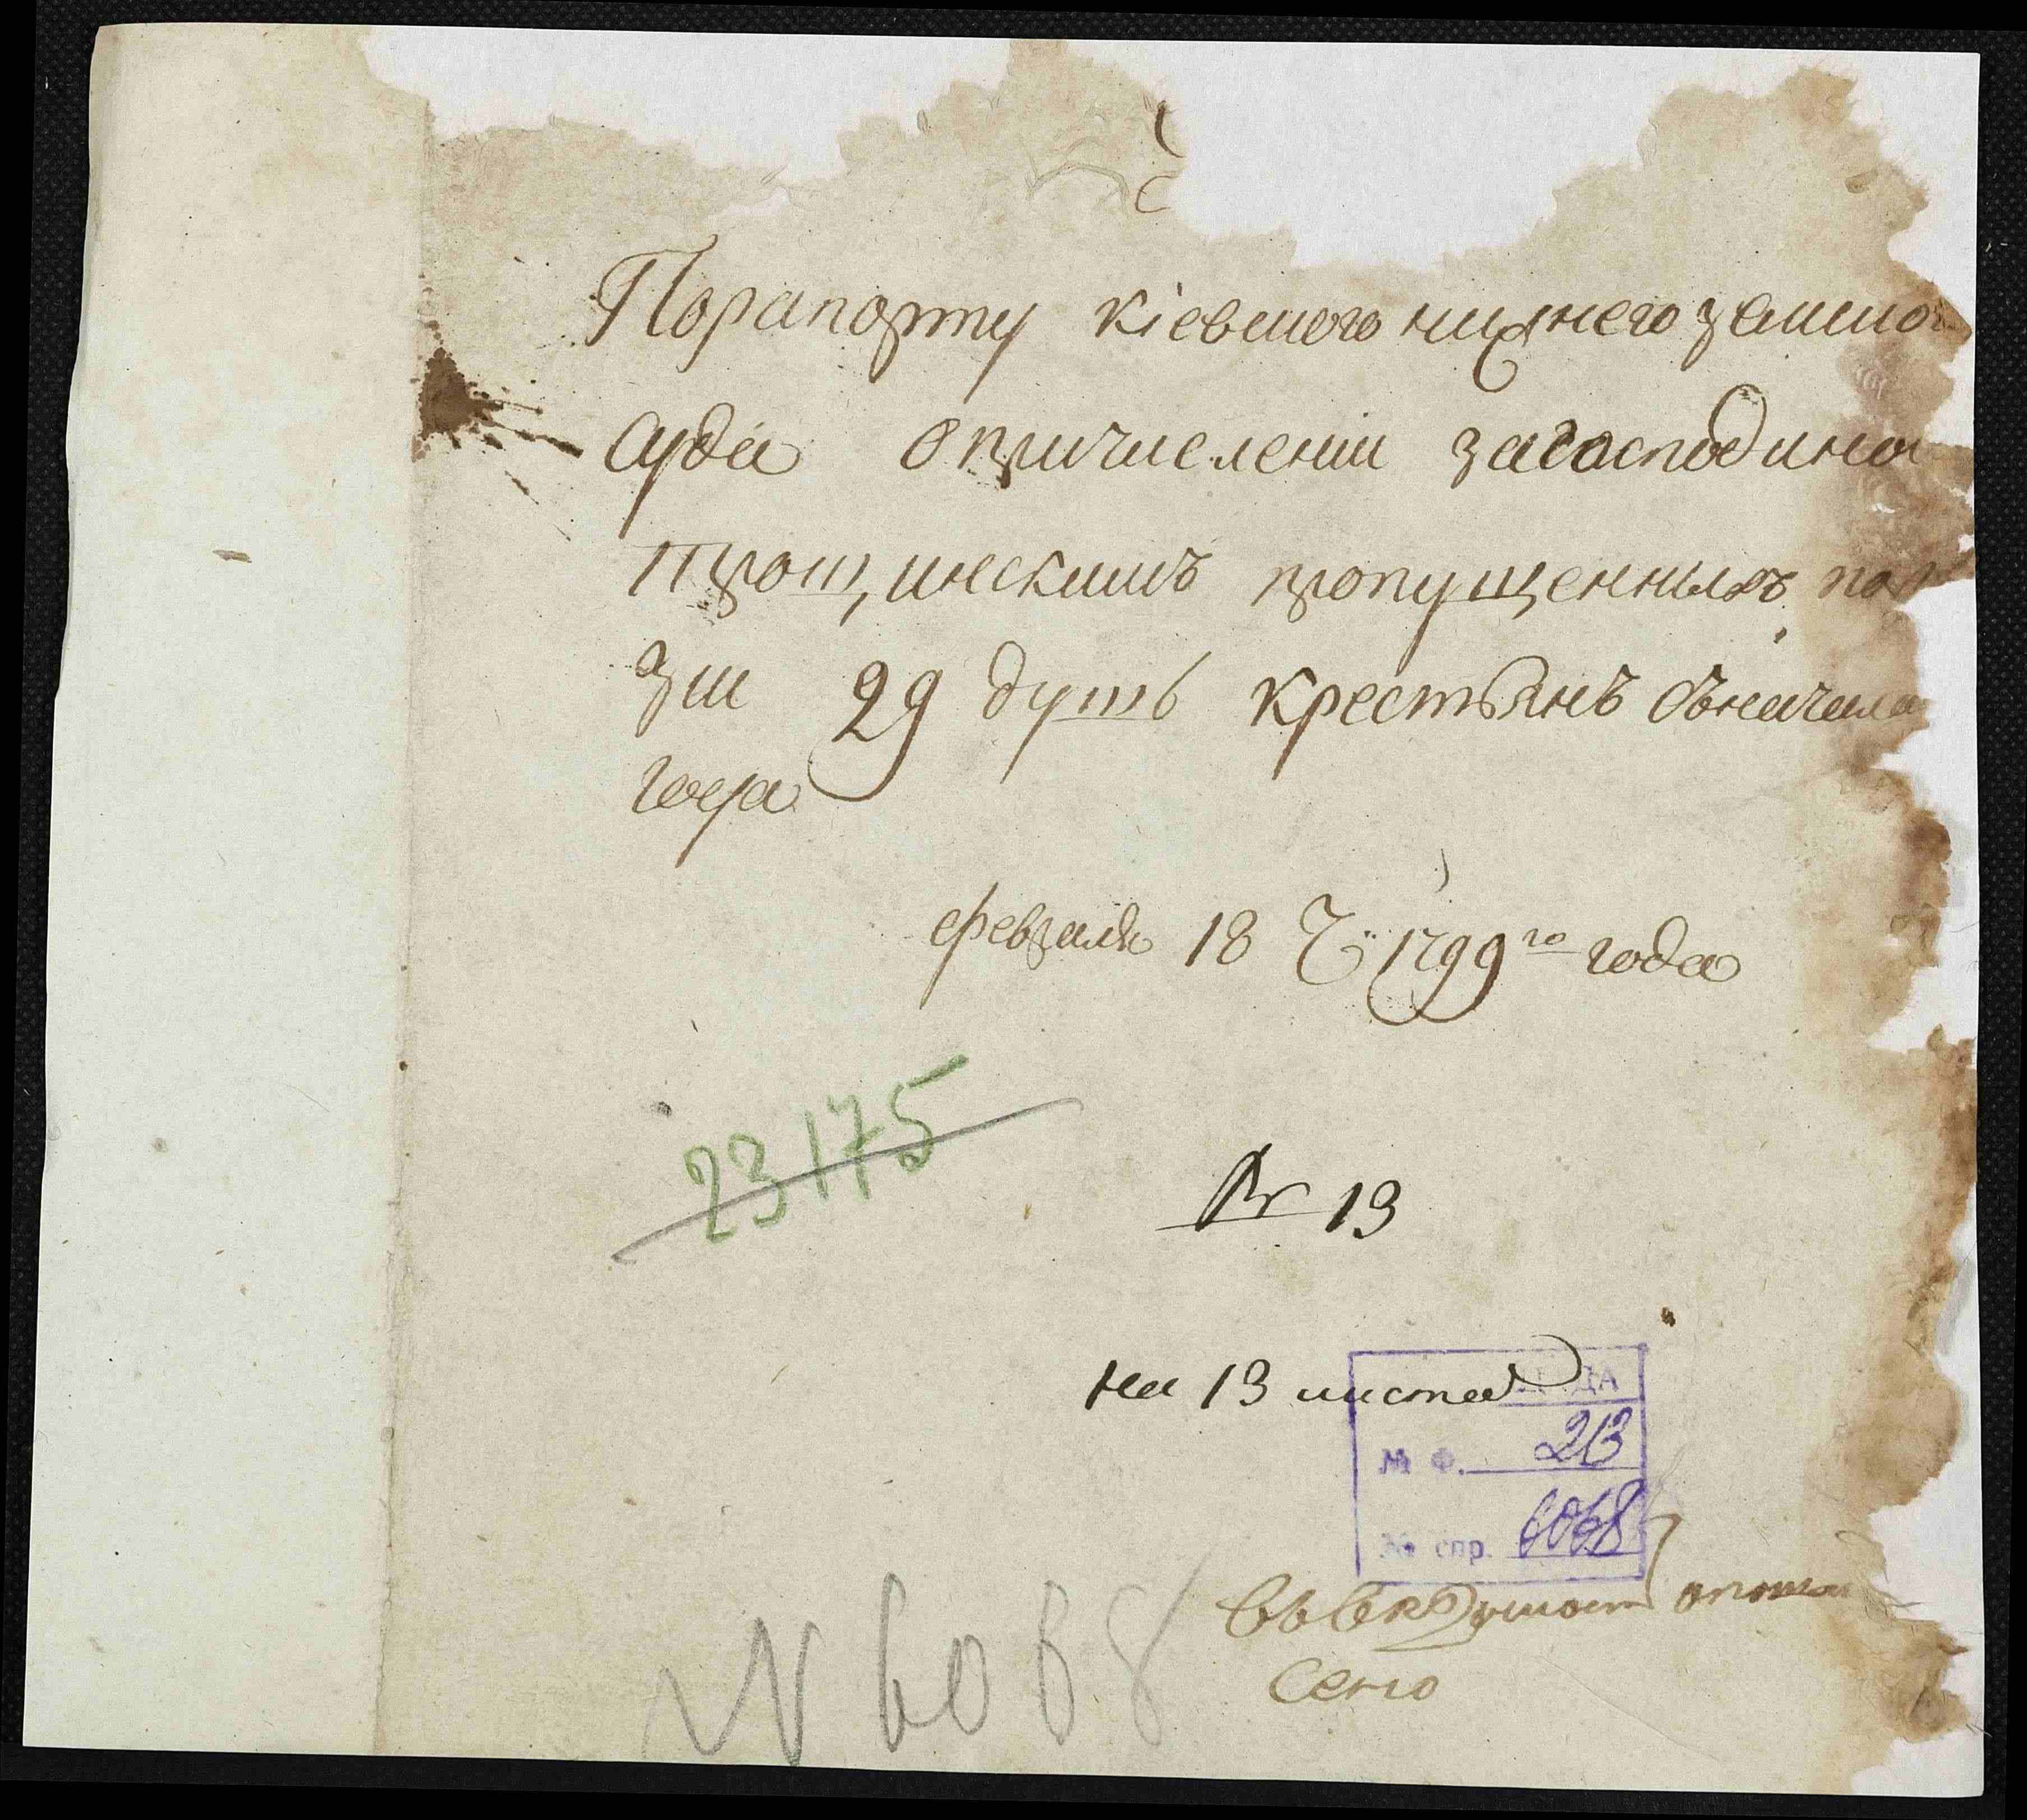 Порапорту кіевского нижнего земског
суда опричислении загосподина
трощинскимъ пропущенныхъ пор
зии 29 душъ крестьянъ
февраля 18 ч: 1799го года
23175
№ 13
на 13 листах
ДА
№ Ф. 213
№ спр. 6068
N 6068
село